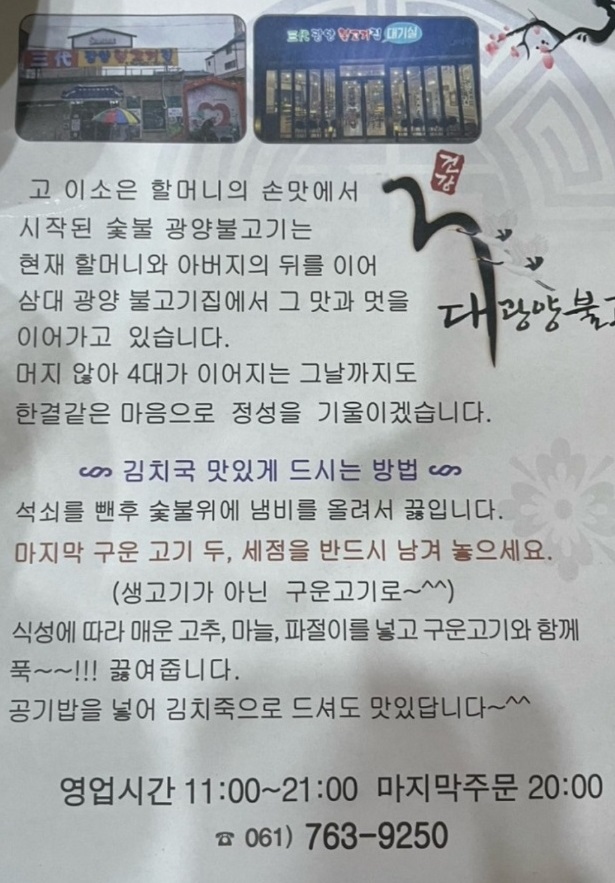 三代 광양불고기집
三代 광양 불고기집 대기실
건강
대광양불
고 이소은 할머니의 손맛에서
시작된 숯불 광양불고기는
현재 할머니와 아버지의 뒤를 이어
삼대 광양 불고기집에서 그 맛과 멋을
이어가고 있습니다.
머지 않아 4대가 이어지는 그날까지도
한결같은 마음으로 정성을 기울이겠습니다.
김치국 맛있게 드시는 방법
석쇠를 뺀후 숯불위에 냄비를 올려서 끓입니다.
마지막 구운 고기 두, 세점을 반드시 남겨 놓으세요.
(생고기가 아닌 구운고기로~^^)
식성에 따라 매운 고추, 마늘, 파절이를 넣고 구운고기와 함께
푹~~!!! 끓여줍니다.
공기밥을 넣어 김치죽으로 드셔도 맛있답니다~^^
영업시간 11:00~21:00 마지막주문 20:00
☎ 061) 763-9250